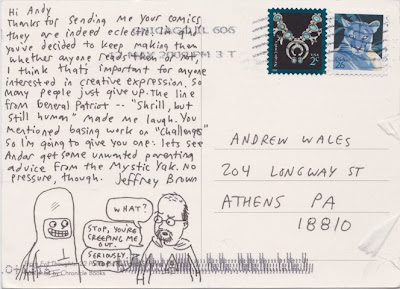 Hi Andy
Thanks for sending me your comics
they are indeed eclectic. I'm glad
you've decided to keep making them
whether anyone reads them or not,
I think that's important for anyone
interested in creative expression. So
many people just give up. The line
from General Patriot -- "Shrill, but
still human" made me laugh. You
mentioned basing work on "challenges"
so I'm going to give you one: lets see
Andar get some unwanted parenting
advice from the Mystic Yak. No
pressure, though. Jeffrey Brown
WHAT?
STOP, YOU'RE
CREEPING ME
OUT.
SERIOUSLY.
STOP IT.
Chronicle Books
CHICAGO IL 606
2¢
ANDREW WALES
204 LONGWAY ST
ATHENS PA
18810